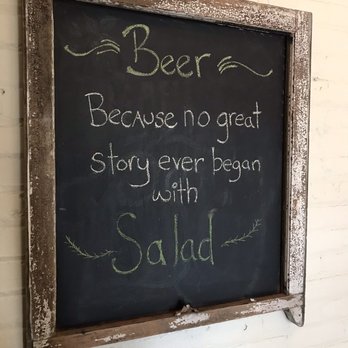 Beer
Because no great
story ever began
with
Salad